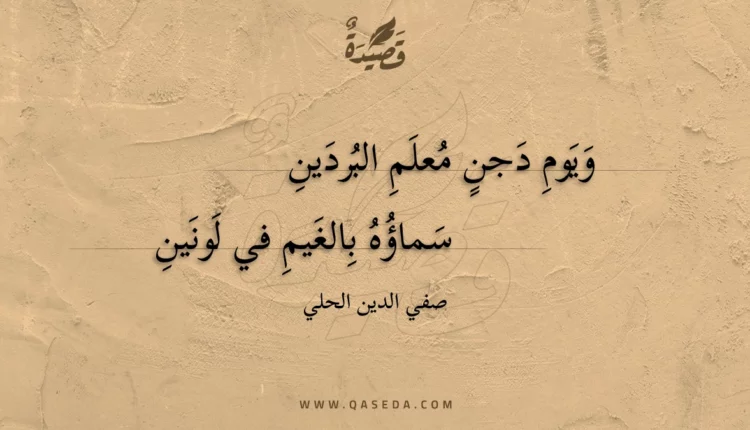 قَصِيْدَةٌ
وَيَومِ دَجنٍ مُعلَمِ البُردَينِ
سَماؤُهُ بِالغَيمِ في لَونَينِ
صفي الدين الحلي
WWW.QASEDA.COM